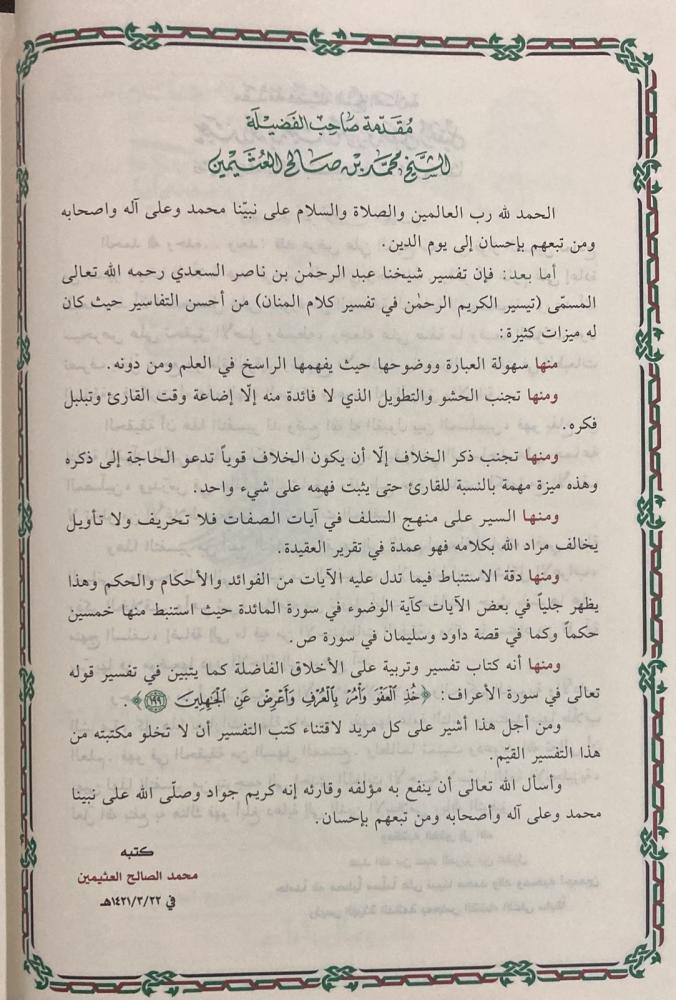 مُقَدِّمة صَاحِب الفَضيْلَة
الشَّيْخ محمَّد بن صَالح العُثيمين
الحمد لله رب العالمين والصلاة والسلام على نبيّنا محمد وعلى آله واصحابه
ومن تبعهم بإحسان إلى يوم الدين.
أما بعد: فإن تفسير شيخنا عبد الرحمٰن بن ناصر السعدي رحمه الله تعالى
المسمّى (تيسير الكريم الرحمٰن في تفسير كلام المنان) من أحسن التفاسير حيث كان
له ميزات كثيرة:
منها سهولة العبارة ووضوحها حيث يفهمها الراسخ في العلم ومن دونه.
ومنها تجنب الحشو والتطويل الذي لا فائدة منه إلّا إضاعة وقت القارئ وتبلبل
فكره.
ومنها تجنب ذكر الخلاف إلّا أن يكون الخلاف قوياً تدعو الحاجة إلى ذكره
وهذه ميزة مهمة بالنسبة للقارئ حتى يثبت فهمه على شيء واحد.
ومنها السير على منهج السلف في آيات الصفات فلا تحريف ولا تأويل
يخالف مراد الله بكلامه فهو عمدة في تقرير العقيدة.
ومنها دقة الاستنباط فيما تدل عليه الآيات من الفوائد والأحكام والحكم وهذا
يظهر جلياً في بعض الآيات كآية الوضوء في سورة المائدة حيث استنبط منها خمسين
حكماً وكما في قصة داود وسليمان في سورة ص.
ومنها أنه كتاب تفسير وتربية على الأخلاق الفاضلة كما يتبين في تفسير قوله
تعالى في سورة الأعراف: ﴿خُذِ ٱلْعَفْوَ وَأْمُرْ بِٱلْعُرْفِ وَأَعْرِضْ عَنِ ٱلْجَٰهِلِينَ ١٩٩﴾.
ومن أجل هذا أشير على كل مريد لاقتناء كتب التفسير أن لا تخلو مكتبته من
هذا التفسير القيّم.
وأسأل الله تعالى أن ينفع به مؤلفه وقارئه إنه كريم جواد وصلّى الله على نبينا
محمد وعلى آله وأصحابه ومن تبعهم بإحسان.
كتبه
محمد الصالح العثيمين
في ١٤٢١/٣/٢٢هـ